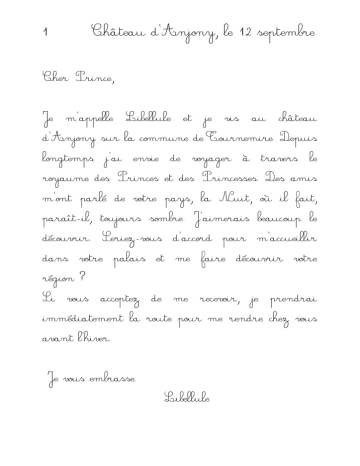 1 Château d'Anjony, le 12 septembre
Cher Prince,
Je m'appelle Libellule et je vis au château
d'Anjony sur la commune de Tournemire. Depuis
longtemps j'ai envie de voyager à travers le
royaume des Princes et des Princesses. Des amis
m'ont parlé de votre pays, la Nuit, où il fait,
paraît-il, toujours sombre. J'aimerais beaucoup le
découvrir. Seriez-vous d'accord pour m'accueillir
dans votre palais et me faire découvrir votre
région ?
Si vous acceptez de me recevoir, je prendrai
immédiatement la route pour me rendre chez vous
avant l'hiver.
Je vous embrasse.
Libellule